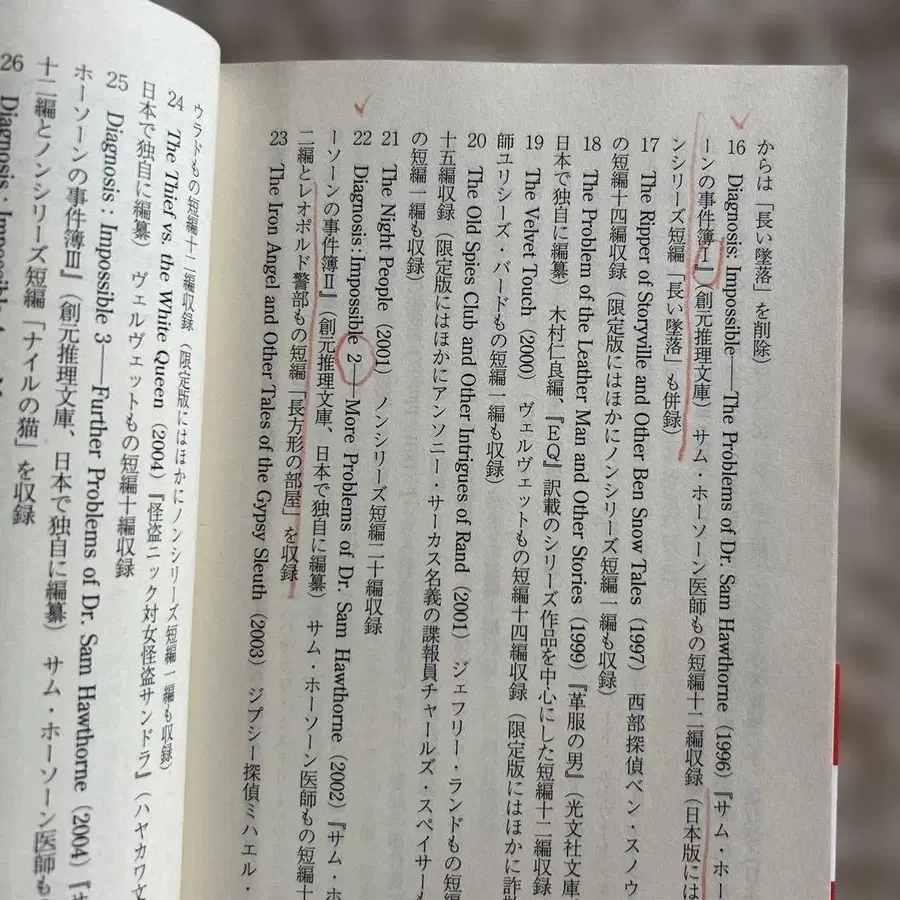 からは「長い墜落」を削除
16 Diagnosis: Impossible——The Problems of Dr. Sam Hawthorne (1996)『サム・ホ
ーンの事件簿Ⅰ』(創元推理文庫) サム・ホーソーン医師もの短編十二編収録(日本版には
ンシリーズ短編「長い墜落」も併録)
17 The Ripper of Storyville and Other Ben Snow Tales (1997) 西部探偵ベン・スノウ
の短編十四編収録(限定版にはほかにノンシリーズ短編一編も収録)
18 The Problem of the Leather Man and Other Stories (1999)『革服の男』(光文社文庫
日本で独自に編纂) 木村仁良編、『EQ』訳載のシリーズ作品を中心にした短編十二編収録
19 The Velvet Touch (2000) ヴェルヴェットもの短編十四編収録(限定版にはほかに詐
師ユリシーズ・バードもの短編一編も収録)
20 The Old Spies Club and Other Intrigues of Rand (2001) ジェフリー・ランドもの短編
十五編収録(限定版にはほかにアンソニー・サーカス名義の諜報員チャールズ・スペイサーも
の短編一編も収録)
21 The Night People (2001) ノンシリーズ短編二十編収録
22 Diagnosis: Impossible 2——More Problems of Dr. Sam Hawthorne (2002)『サム・ホ
ーソーンの事件簿Ⅱ』(創元推理文庫、日本で独自に編纂) サム・ホーソーン医師もの短編十
二編とレオポルド警部もの短編「長方形の部屋」を収録
23 The Iron Angel and Other Tales of the Gypsy Sleuth (2003) ジプシー探偵ミハエル・
ウラドもの短編十二編収録(限定版にはほかにノンシリーズ短編一編も収録)
24 The Thief vs. the White Queen (2004)『怪盗ニック対女怪盗サンドラ』(ハヤカワ文
日本で独自に編纂) ヴェルヴェットもの短編十編収録
25 Diagnosis: Impossible 3——Further Problems of Dr. Sam Hawthorne (2004)『サ
ホーソーンの事件簿Ⅲ』(創元推理文庫、日本で独自に編纂) サム・ホーソーン医師も
十二編とノンシリーズ短編「ナイルの猫」を収録
26 Diagnosis: Impossible 4